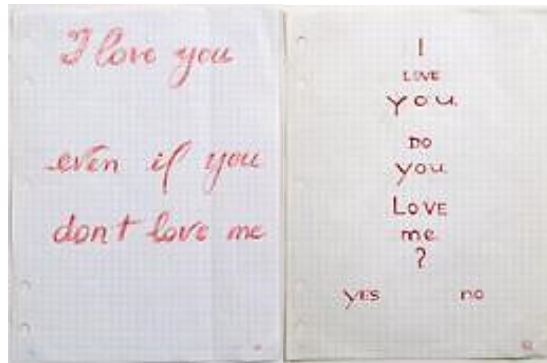 I love you
even if you
don't love me
I
LOVE
you
DO
you
LOVE
me
?
YES no